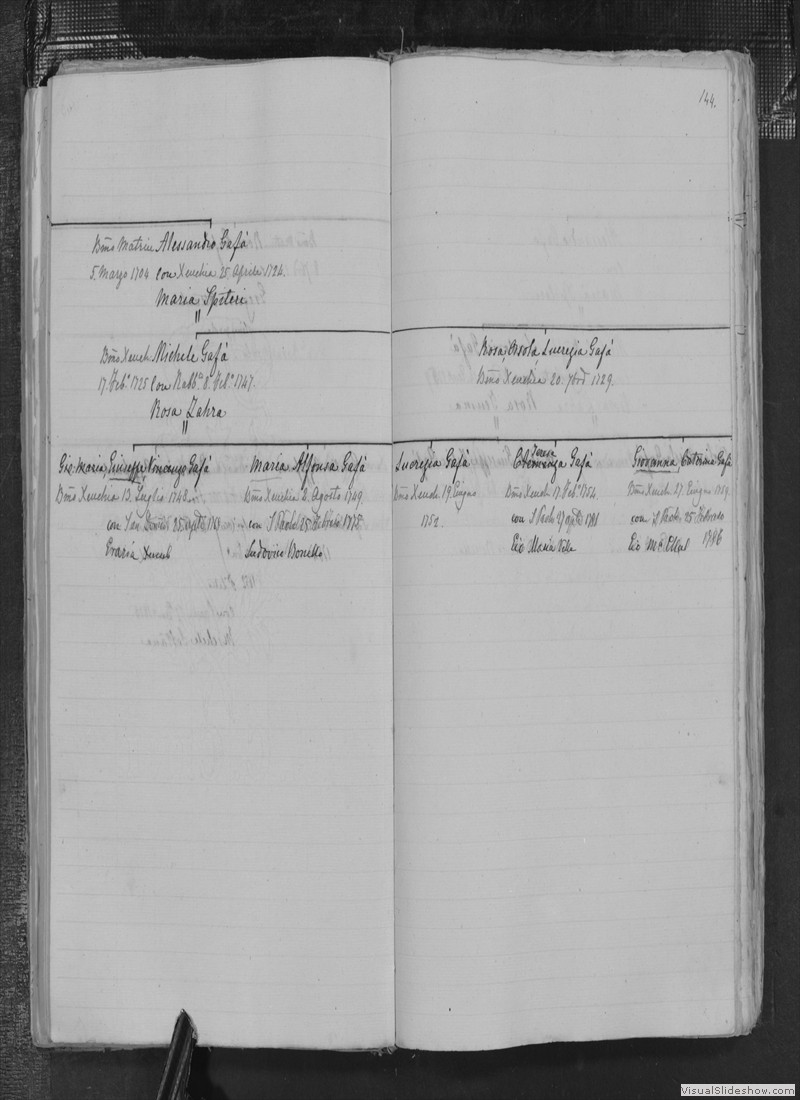 144.
Bmo Matrice Alessandro Gafá
5. Marzo 1704. con Xeuchia 25 Aprile 1724.
Maria Spiteri
"
Bmo Xeuch. Michele Gafá
17. Feb. 1725 Con Rabb. 8. Feb. 1747.
Rosa Zahra
"
Rosa, Orsola Lucrezia Gafá
Bmo Xeuchia 20. 7bre 1729.
Gio: Maria, Giuseppe Vincenzo Gafá
Bmo Xeuchia 13. Luglio 1748.
con 25
Grazia Xuereb
Maria Alfonsa Gafá
Bmo Xeuchia 2. Agosto 1749.
con S Paolo 25 1775
Ludovico Bonello
Lucrezia Gafá
Bmo Xeuch. 19 Giugno
1752.
Teresa
Gafá
Bmo Xeuch. 17. Feb. 1754.
con S Paolo 27
Gio Maria Vella
Giovanna, Caterina Gafá
Bmo Xeuch. 27. Giugno 1759.
con S Paolo 25 Febraro
1786
Gio
VisualSlideshow.com